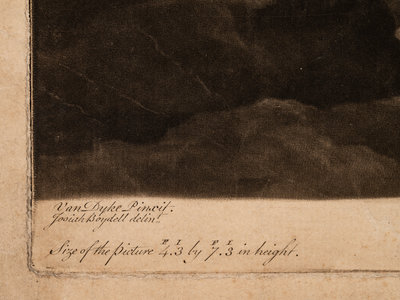 Van Dyke Pinxit.
Josiah Boydell delin.t
Size of the picture F 4. I 3 by F 7. I 3 in height.